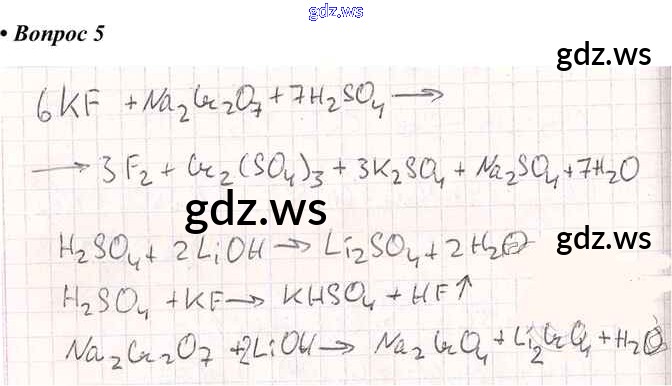 gdz.ws
• Вопрос 5
gdz.ws
6KF + Na₂Cr₂O₇ + 7H₂SO₄ ⟶
⟶ 3F₂ + Cr₂(SO₄)₃ + 3K₂SO₄ + Na₂SO₄ + 7H₂O
gdz.ws
gdz.ws
H₂SO₄ + 2LiOH → Li₂SO₄ + 2H₂O
H₂SO₄ + KF → KHSO₄ + HF↑
Na₂Cr₂O₇ + 2LiOH → Na₂CrO₄ + Li₂CrO₄ + H₂O